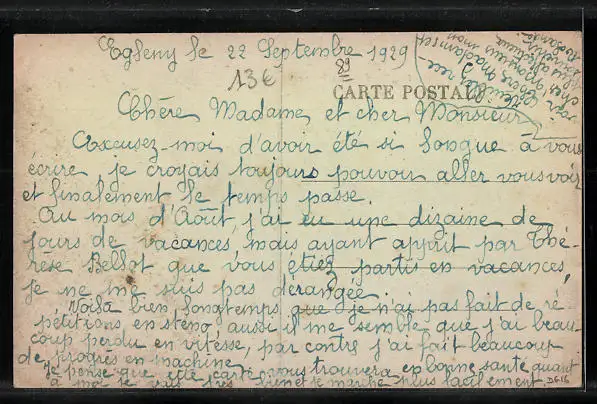 Egleny le 22 Septembre 1929
13€
89
CARTE POSTALE
Chère Madame et cher Monsieur
Excusez-moi d'avoir été si longue à vous
écrire, je croyais toujours pouvoir aller vous voir
et finalement le temps passe.
Au mois d'Août, j'ai eu une dizaine de
jours de vacances, mais ayant apprit par Thé-
rèse Bellot que vous étiez partis en vacances,
je ne me suis pas dérangée.
Voilà bien longtemps que je n'ai pas fait de ré-
pétitions en sténo, aussi il me semble que j'ai beau-
coup perdu en vitesse, par contre j'ai fait beaucoup
de progrès en machine.
Je pense que cette carte vous trouvera en bonne santé quant
à moi je vais très bien et je marche plus facilement
D616